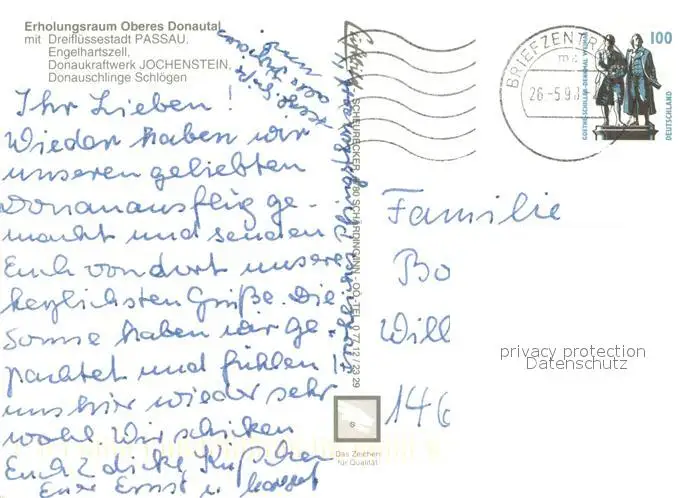 Erholungsraum Oberes Donautal
mit Dreiflüssestadt PASSAU,
Engelhartszell,
Donaukraftwerk JOCHENSTEIN,
Donauschlinge Schlögen
Ihr Lieben!
Wieder haben wir
unseren geliebten
Donauausflug ge-
macht und senden
Euch von dort unsere
herzlichsten Grüße. Die
Sonne haben wir ge-
pachtet und fühlen
uns hier wieder sehr
wohl. Wir schicken
Euch 2 dicke Küßchen
Eure Ernst u.
BRIEFZENTR
26-5.9
GOETHE-SCHILLER-DENKMAL WEIMAR
100
DEUTSCHLAND
Familie
Bo
Will
146
privacy protection
Datenschutz
Das Zeichen
für Qualität